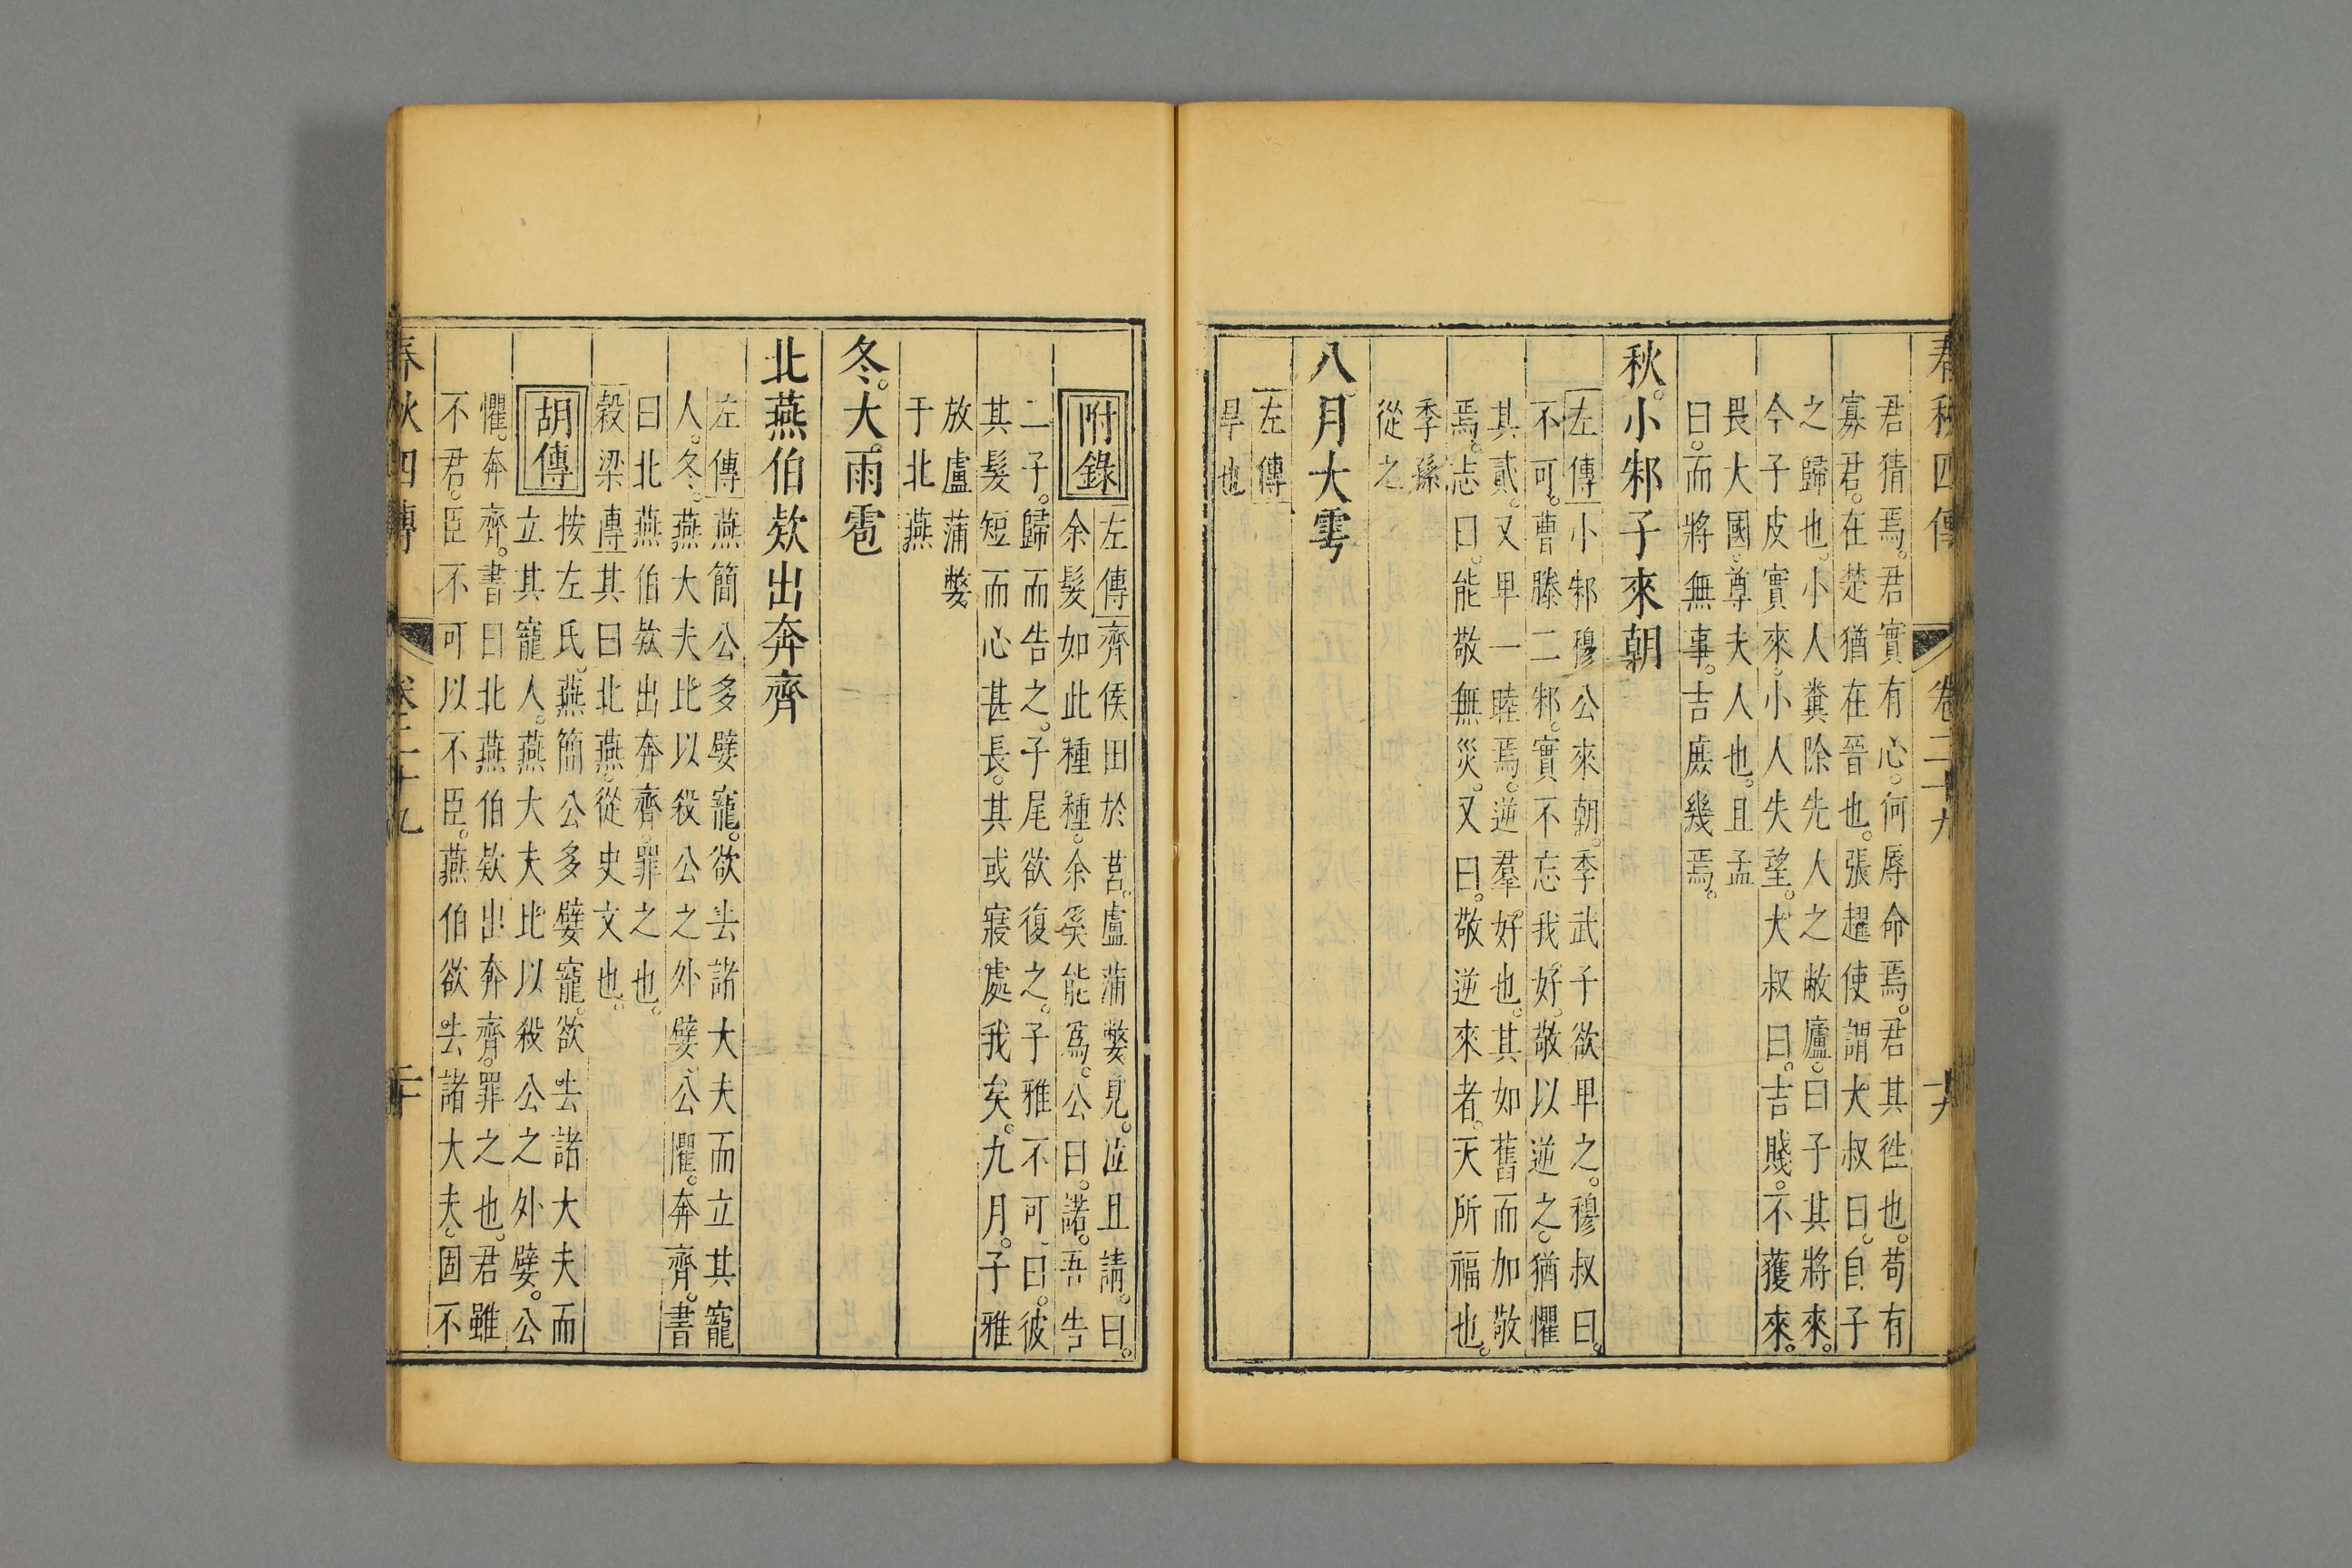 春秋四傳 卷二十九 十九
君猜焉。君實有心。何辱命焉。君其徃也。苟有
寡君。在楚猶在晉也。張趯使謂大叔曰。自子
之歸也。小人糞除先人之敝廬。曰子其將來。
今子皮實來。小人失望。大叔曰。吉賤。不獲來。
畏大國。尊夫人也。且孟
曰。而將無事。吉庶幾焉。
秋。小邾子來朝
左傳小邾穆公來朝。季武子欲卑之。穆叔曰。
不可。曹滕二邾。實不忘我好。敬以逆之。猶懼
其貳。又卑一睦焉。逆羣好也。其如舊而加敬
焉。志曰。能敬無災。又曰。敬逆來者。天所福也。
季孫
從之
八月大雩
左傳
旱也
附錄
左傳齊侯田於莒。盧蒲嫳見。泣且請。曰。
余髮如此種種。余奚能爲。公曰。諾。吾告
二子。歸而告之。子尾欲復之。子雅不可。曰。彼
其髮短而心甚長。其或寢處我矣。九月。子雅
放盧蒲嫳
于北燕
冬。大雨雹
北燕伯欵出奔齊
左傳燕簡公多嬖寵。欲去諸大夫而立其寵
人。冬。燕大夫比以殺公之外嬖。公懼。奔齊。書
曰北燕伯欵出奔齊。罪之也。
穀梁傳其曰北燕。從史文也。
胡傳
按左氏。燕簡公多嬖寵。欲去諸大夫而
立其寵人。燕大夫比以殺公之外嬖。公
懼。奔齊。書曰北燕伯欵出奔齊。罪之也。君雖
不君。臣不可以不臣。燕伯欲去諸大夫。固不
春秋四傳 卷二十九 二十